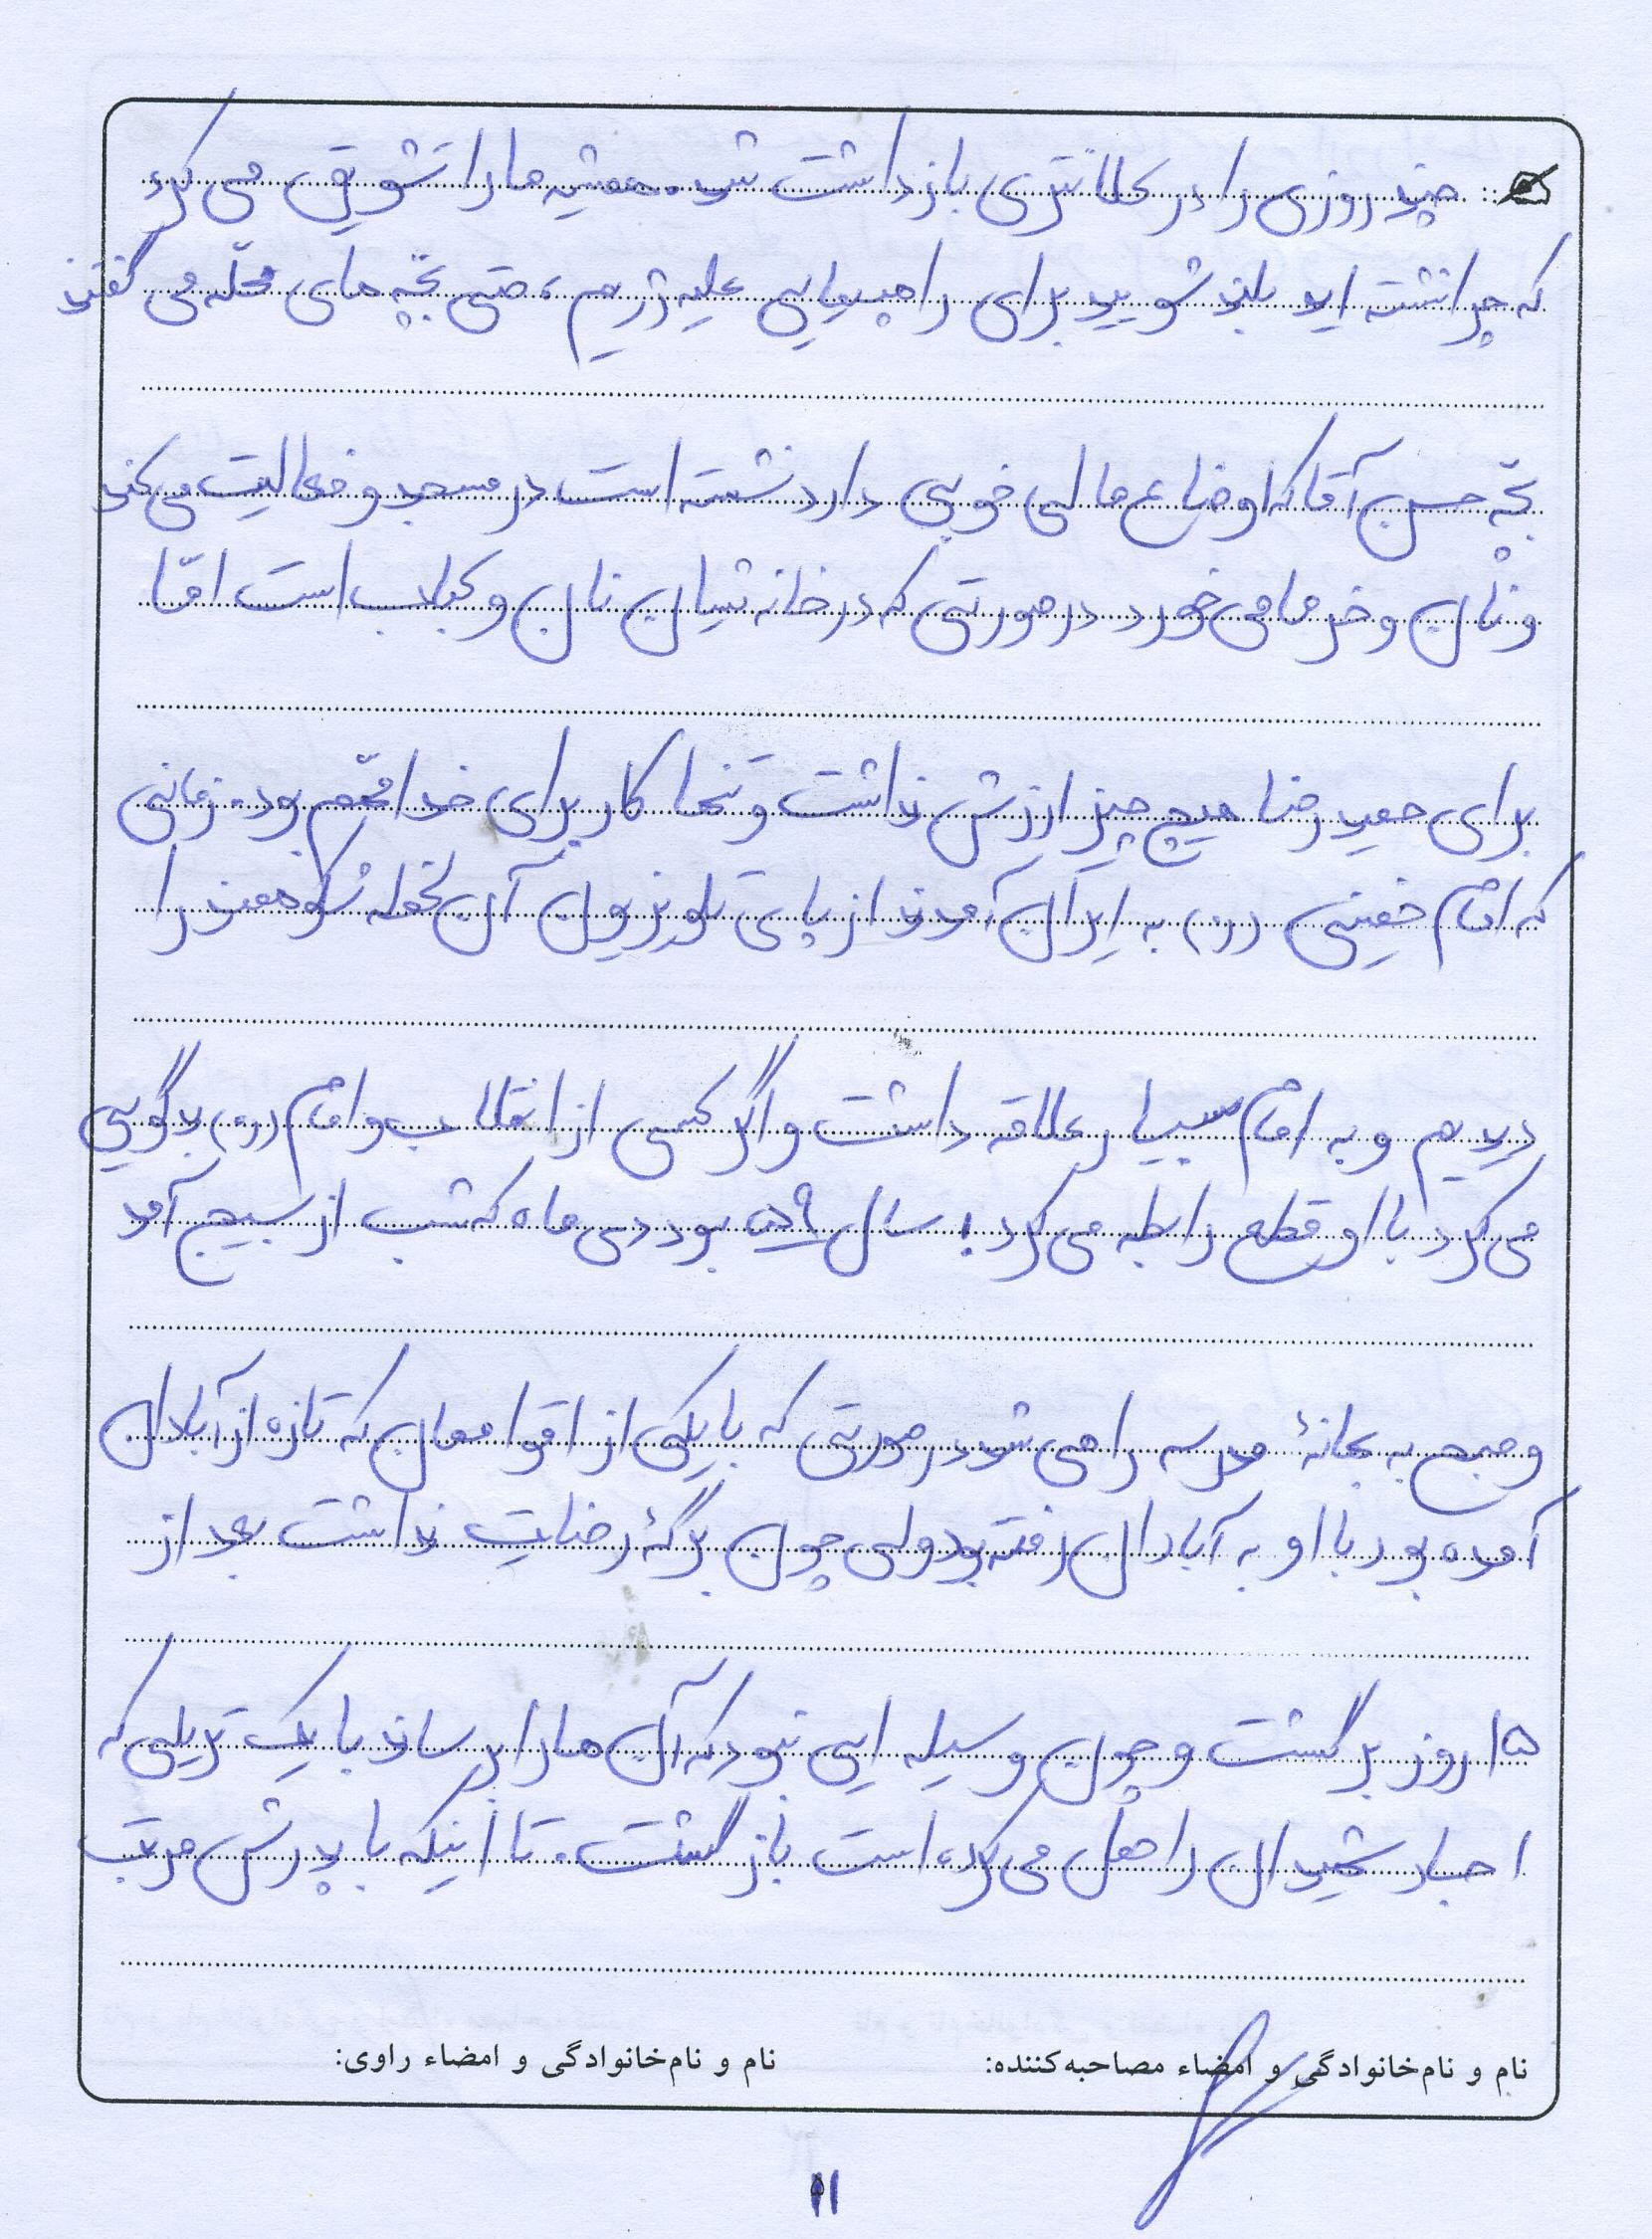 چند روزی را در کلانتری بازداشت شد. همشیه ما را تشویق می کرد
که چرا نشته اید بلند شویید برای راهپیمایی علیه رژیم، حتی بچّه های محلّه می گفتند
بچّه حسن آقا که اوضاع مالی خوبی دارد نشسته است در مسجد و فعالیت می کند
و نان و خرما می خورد در صورتی که در خانه شان نان و کباب است امّا
برای حمید رضا هیچ چیز ارزش نداشت و تنها کار برای خدا مهّم بود. زمانی
که امام خمینی (ره) به ایران آمدند از پای تلویزیون آن لحظه شکوهمند را
دیدیم و به امام بسیار علاقه داشت و اگر کسی از انقلاب و امام (ره) بدگویی
می کرد با او قطع رابطه می کرد! سال ۵۹ بود دی ماه که شب از بسیج آمد
و صبح به بهانهٔ مدرسه راهی شد در صورتی که با یکی از اقوامان که تازه از آبادان
آمده بود با او به آبادان رفته بود ولی چون برگهٔ رضایت نداشت بعد از
۱۵ روز برگشت و چون وسیله ایی نبود که آن ها را برساند با یک تریلی که
اجساد شهیدان را حمل می کرده است بازگشت. تا اینکه با پدرش مرتب
نام و نام‌خانوادگی و امضاء مصاحبه‌کننده: نام و نام‌خانوادگی و امضاء راوی:
۱۱